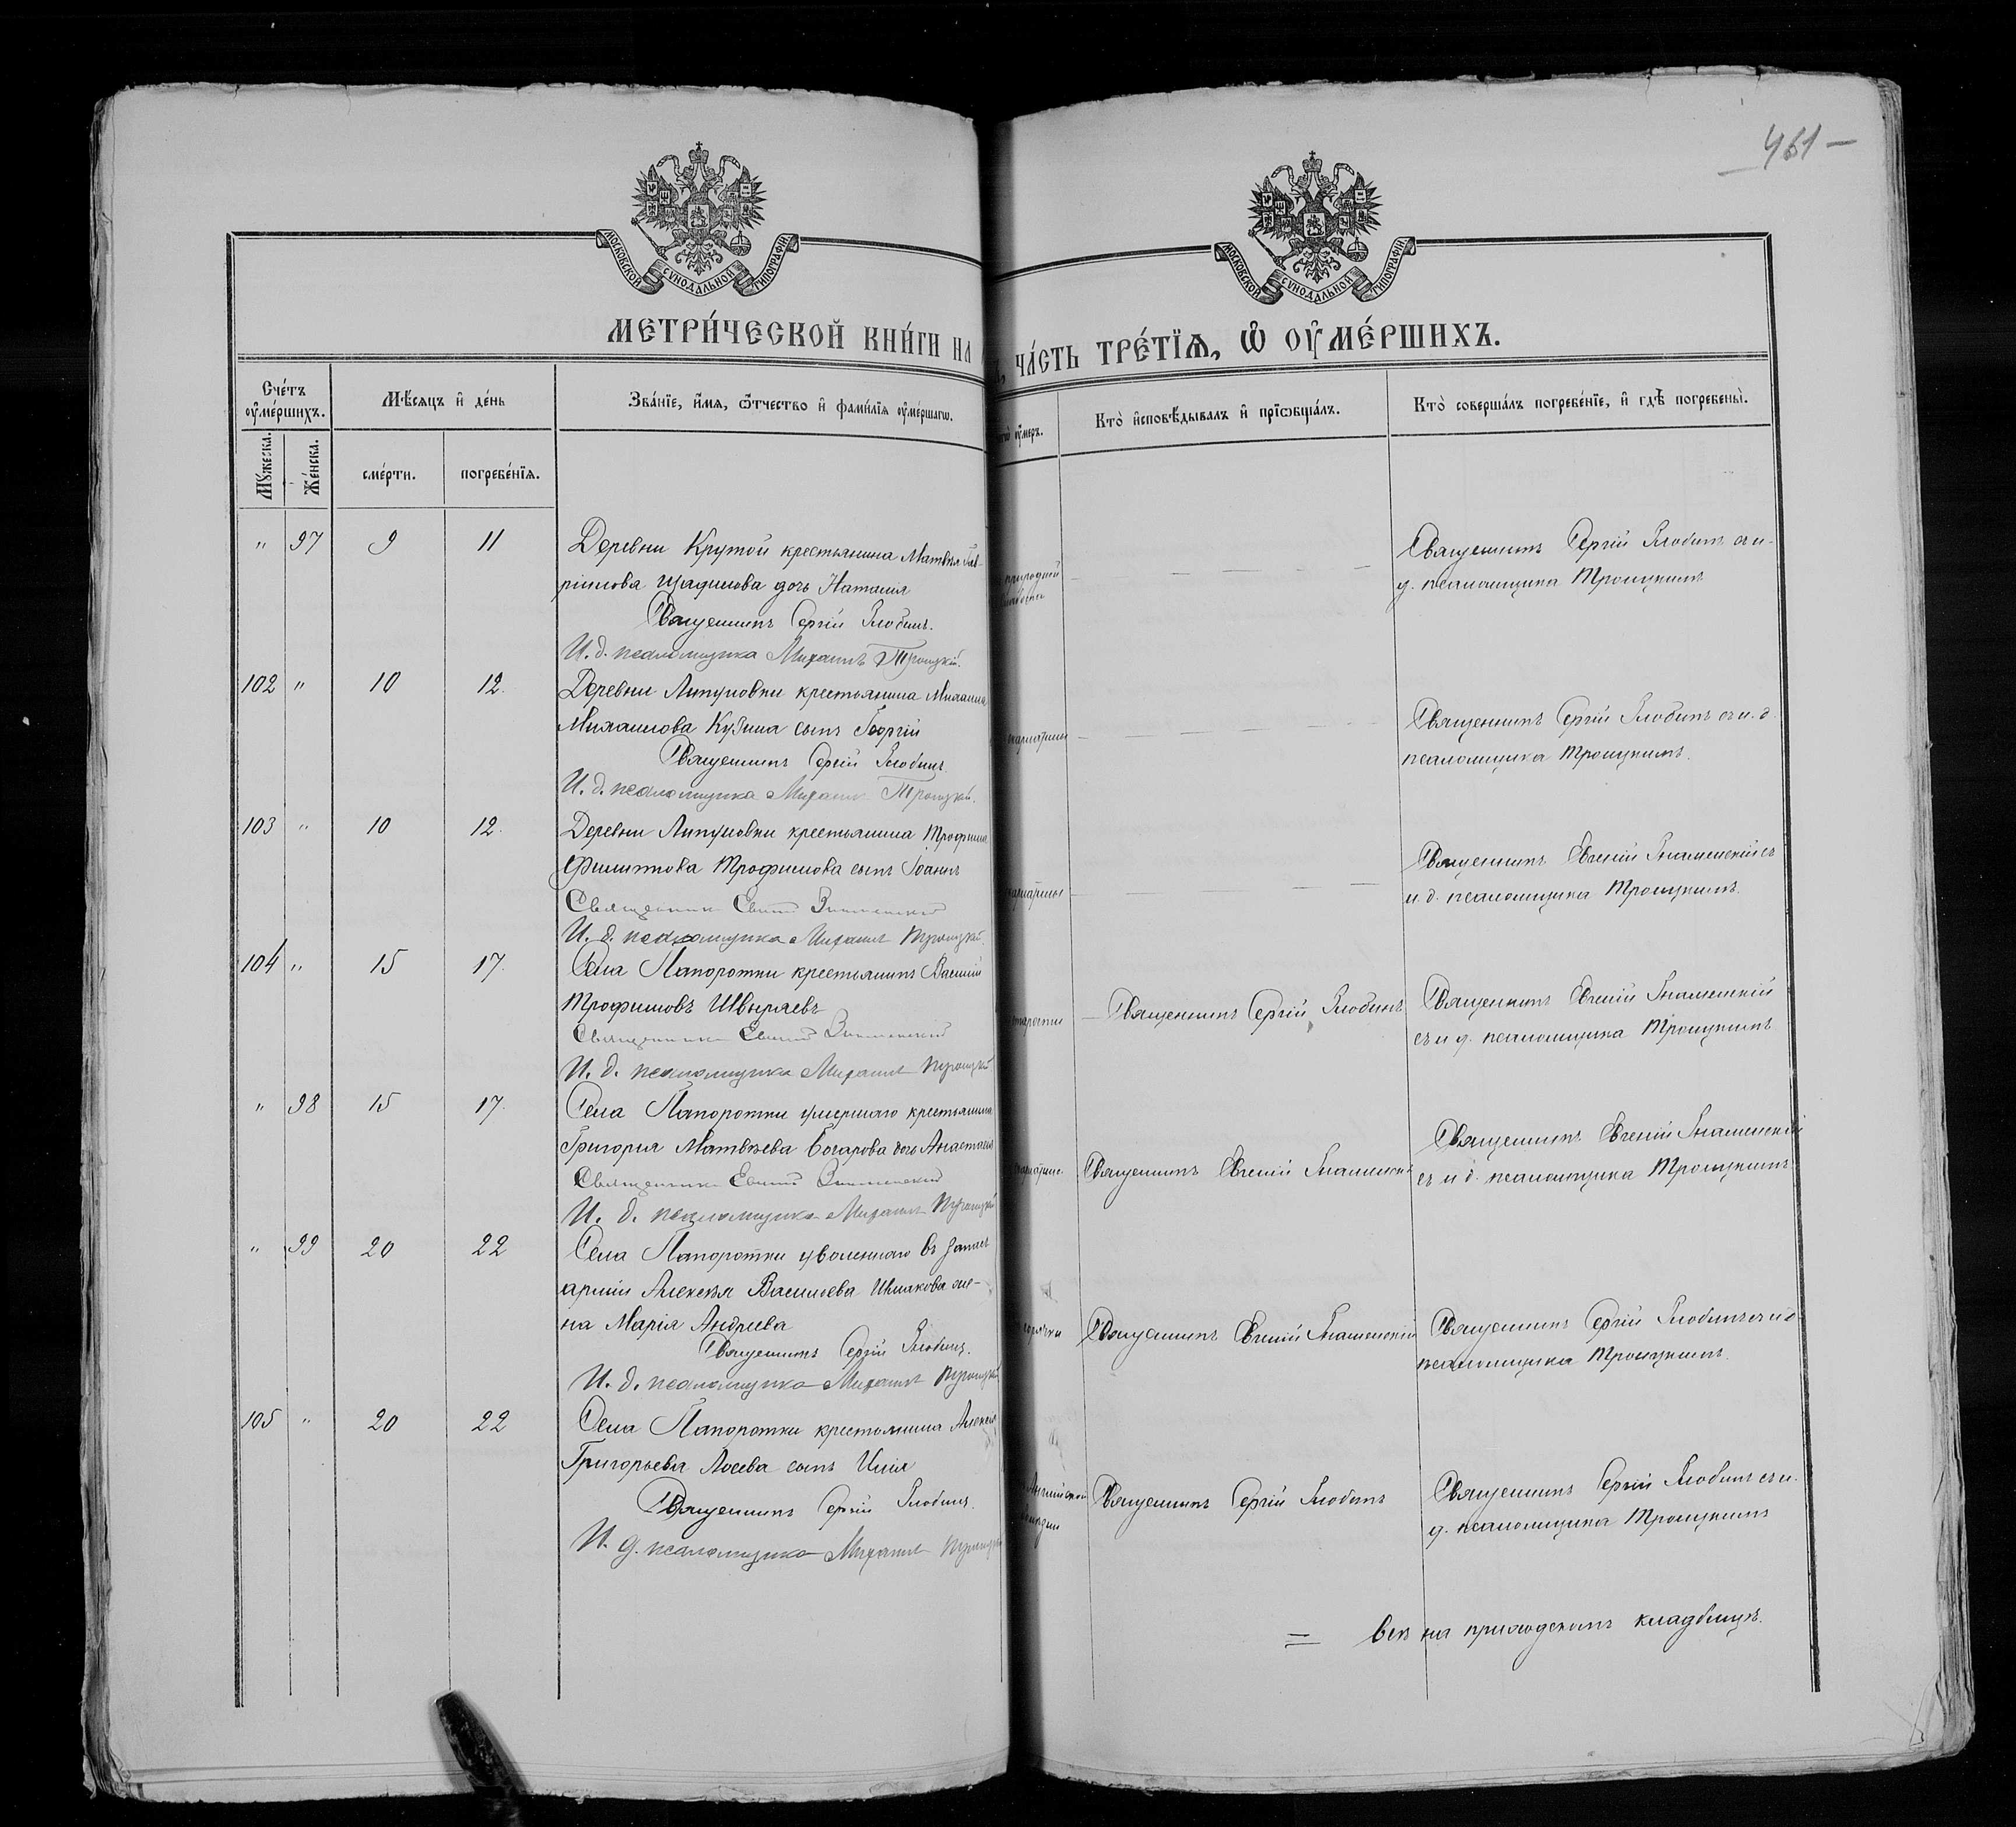 461
МОСКОВСКОЙ СѴНОДАЛЬНОЙ ТИПОГРАФІИ
МОСКОВСКОЙ СѴНОДАЛЬНОЙ ТИПОГРАФІИ
МЕТРИ́ЧЕСКОЙ КНИ́ГИ НА
ЧА́СТЬ ТРЕ́ТЇѦ, Ѡ҆ ОУ҆МЕ́РШИХЪ.
Сче́тъ
оу҆ме́ршихъ.
Мѣ́сѧцъ и҆ де́нь
Зва́нїе, и҆́мѧ, ѻ҆́тчество и҆ фами́лїѧ оу҆ме́ршагѡ.
оу҆́меръ.
Кто̀ и҆сповѣ́дывалъ и҆ прїѡбща́лъ.
Кто̀ соверша́лъ погребе́нїе, и҆ гдѣ̀ погребены̀.
Мꙋ́жеска.
Же́нска.
сме́рти.
погребе́нїѧ.
" 97 9 11
Деревни Крутой крестьянина Матвѣя Гав-
ріилова Щадилова дочь Наталія
Священникъ Сергій Злобинъ.
И. д. псаломщика Михаилъ Троицкій.
Священникъ Сергій Злобинъ съ и.
д. псаломщика Троицкимъ
102 " 10 12.
Деревни крестьянина Михаила
Михаилова сынъ Георгій
Священникъ Сергій Злобинъ
И. д. псаломщика Михаилъ Троицкій.
Священникъ Сергій Злобинъ съ и. д.
псаломщика Троицкимъ.
103 " 10 12.
Деревни крестьянина Трофима
Филиппова Трофимова сынъ Іоаннъ
Священникъ Евгеній Знаменскій
И. д. псаломщика Михаилъ Троицкій.
Священникъ Евгеній Знаменскій съ
и. д. псаломщика Троицкимъ.
104 " 15 17.
Села Папоротки крестьянинъ Василій
Трофимовъ Швыряевъ
Священникъ Евгеній Знаменскій
И. д. псаломщика Михаилъ Троицкій
старости
Священникъ Сергій Злобинъ
Священникъ Евгеній Знаменскій
съ и д. псаломщика Троицкимъ
" 98 15 17.
Села Папоротки умершаго крестьянина
Григорія Матвѣева дочь Анастасія
Священникъ Евгеній Знаменскій
И. д. псаломщика Михаилъ Троицкій
Священникъ Евгеній Знаменскій
Священникъ Евгеній Знаменскій
съ и д. псаломщика Троицкимъ
" 99 20 22
Села Папоротки уволеннаго въ запасъ
арміи Алексѣя Васильева Шмакова же-
на Марія Андреева
Священникъ Сергій Злобинъ.
И. д. псаломщика Михаилъ Троицкій
горячки
Священникъ Евгеній Знаменскій
Священникъ Сергій Злобинъ съ и д
псаломщика Троицкимъ.
105 " 20 22
Села Папоротки крестьянина Алексѣя
Григорьева Лосева сынъ Илія
Священникъ Сергій Злобинъ.
И. д. псаломщика Михаилъ Троицкій
Англійской
Священникъ Сергій Злобинъ
Священникъ Сергій Злобинъ съ и.
д. псаломщика Троицкимъ
= всѣ на приходскомъ кладбищѣ.